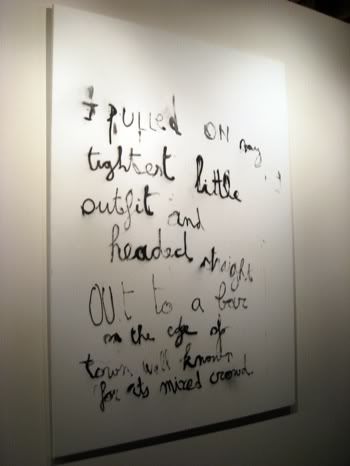 I pulled on my
tightest little
outfit and
headed straight
OUt to a bar
on the edge of
town well known
for its mixed crowd.